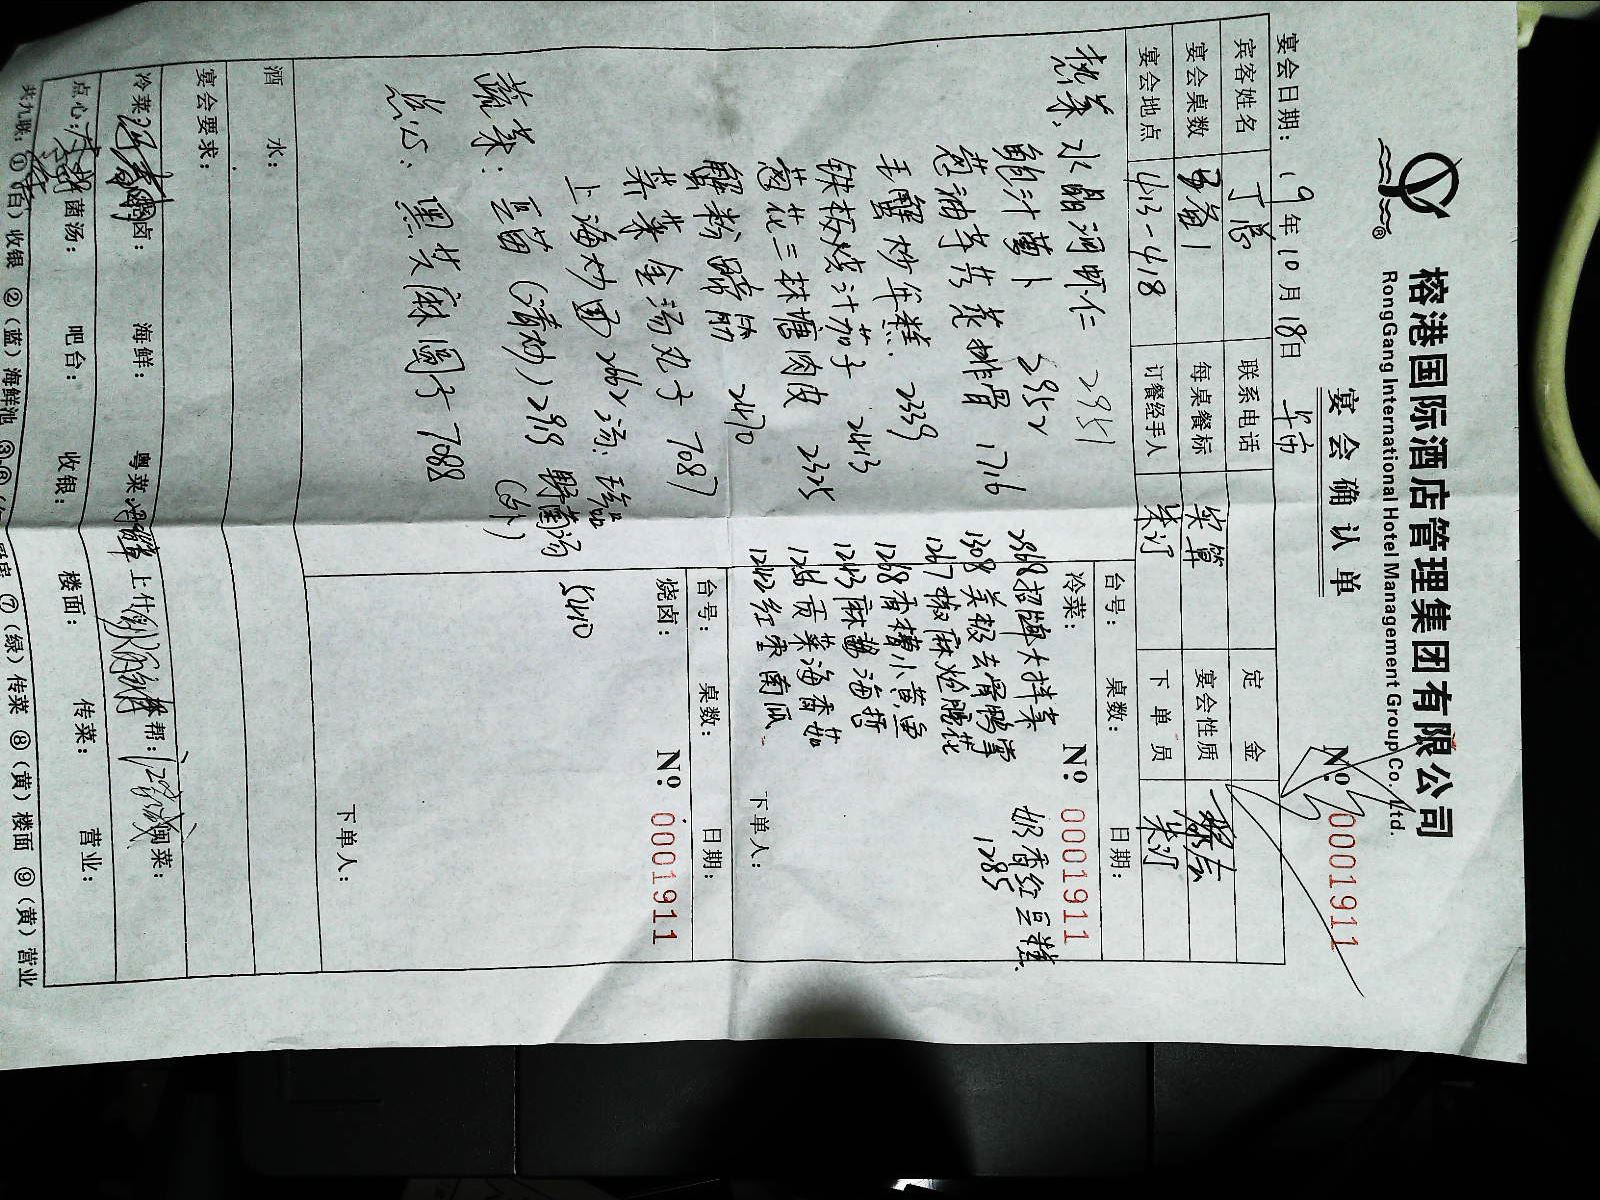 榕港国际酒店管理集团有限公司
RongGang International Hotel Management Group Co., Ltd.
宴会确认单
No. 00019111
宴会日期: 19年10月18日
宾客姓名 丁 联系电话 定金
宴会桌数 每桌餐标 实算 宴会性质
宴会地点 413-418 订餐经手人 朱订 下单员 朱订
热菜: 水晶河虾仁 2951
鲍汁萝卜 2952
葱油 排骨 1716
毛蟹炒年糕 2339
铁板烧汁茄子 2413
葱花三林塘肉皮 2325
蟹粉蹄筋 2470
荠菜金汤丸子 7087
上海炒面 2662 汤:
蔬菜: 豆苗(清炒) 2919 野菌汤
(外)
点心: 黑芝麻圆子 7088
酒水:
宴会要求:
台号: 桌数: 日期:
冷菜: No. 00019111
2868 招牌大拌菜
1308 美极去骨鸭掌 奶香红豆糕
1267 椒麻 腰花 1285
1268 香糟小黄鱼
1243 麻酱海哲
1256 贡菜海香菇
1242 红枣南瓜
下单人:
台号: 桌数: 日期:
烧卤: No. 00019111
下单人:
冷菜: 卤: 海鲜: 粤菜: 上什 本帮: 闽菜:
点心: 菌汤: 吧台: 收银: 楼面: 传菜: 营业:
共九联: ①(白)收银 ②(蓝)海鲜池 ⑦(绿)传菜 ⑧(黄)楼面 ⑨(黄)营业